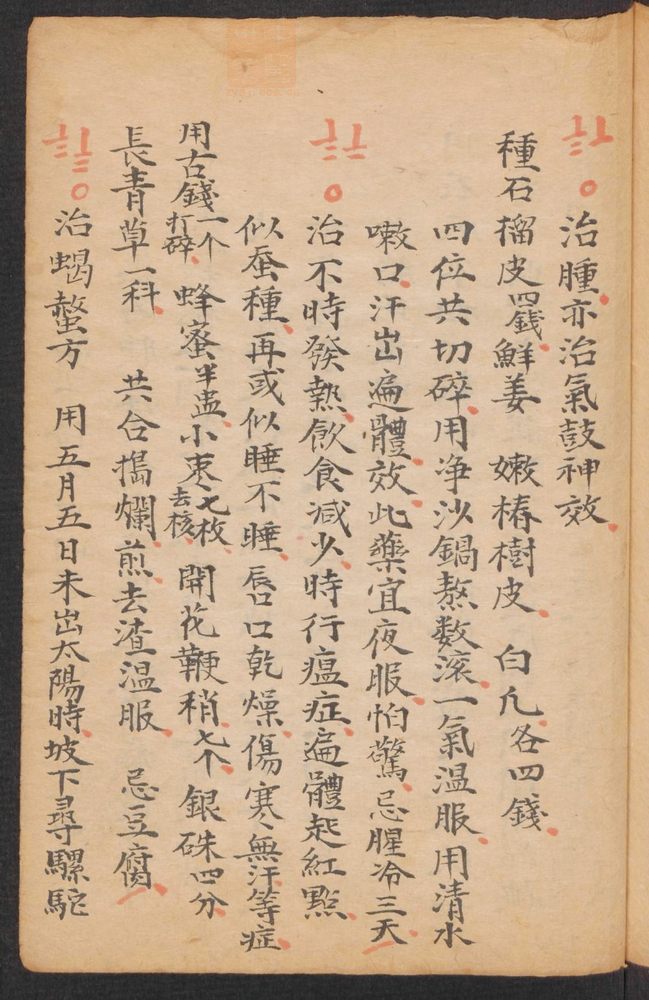 治腫亦治氣鼓神效
種石榴皮四錢鮮姜 嫩椿樹皮 白凡各四錢
四位共切碎用净沙鍋熬数滚一氣温服用清水
嗽口汗出遍體效此藥宜夜服怕驚忌腥冷三天
治不時發熱飲食减少時行瘟症遍體起紅點
似蚕種再或似睡不睡唇口乾燥傷寒無汗等症
用古錢一个打碎蜂蜜半盅小枣七枚去核開花鞭稍七个銀硃四分
長青草一科 共合搗爛煎去渣温服 忌豆腐
治蝎螫方 用五月五日未出太陽時坡下尋騾駝